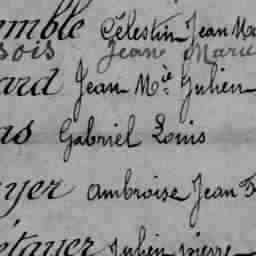 emble Célestin Jean Ma
sois Jean Marie
ard Jean Mie Julien
as Gabriel Louis
yer Ambroise Jean F
étayer Julien Pierre